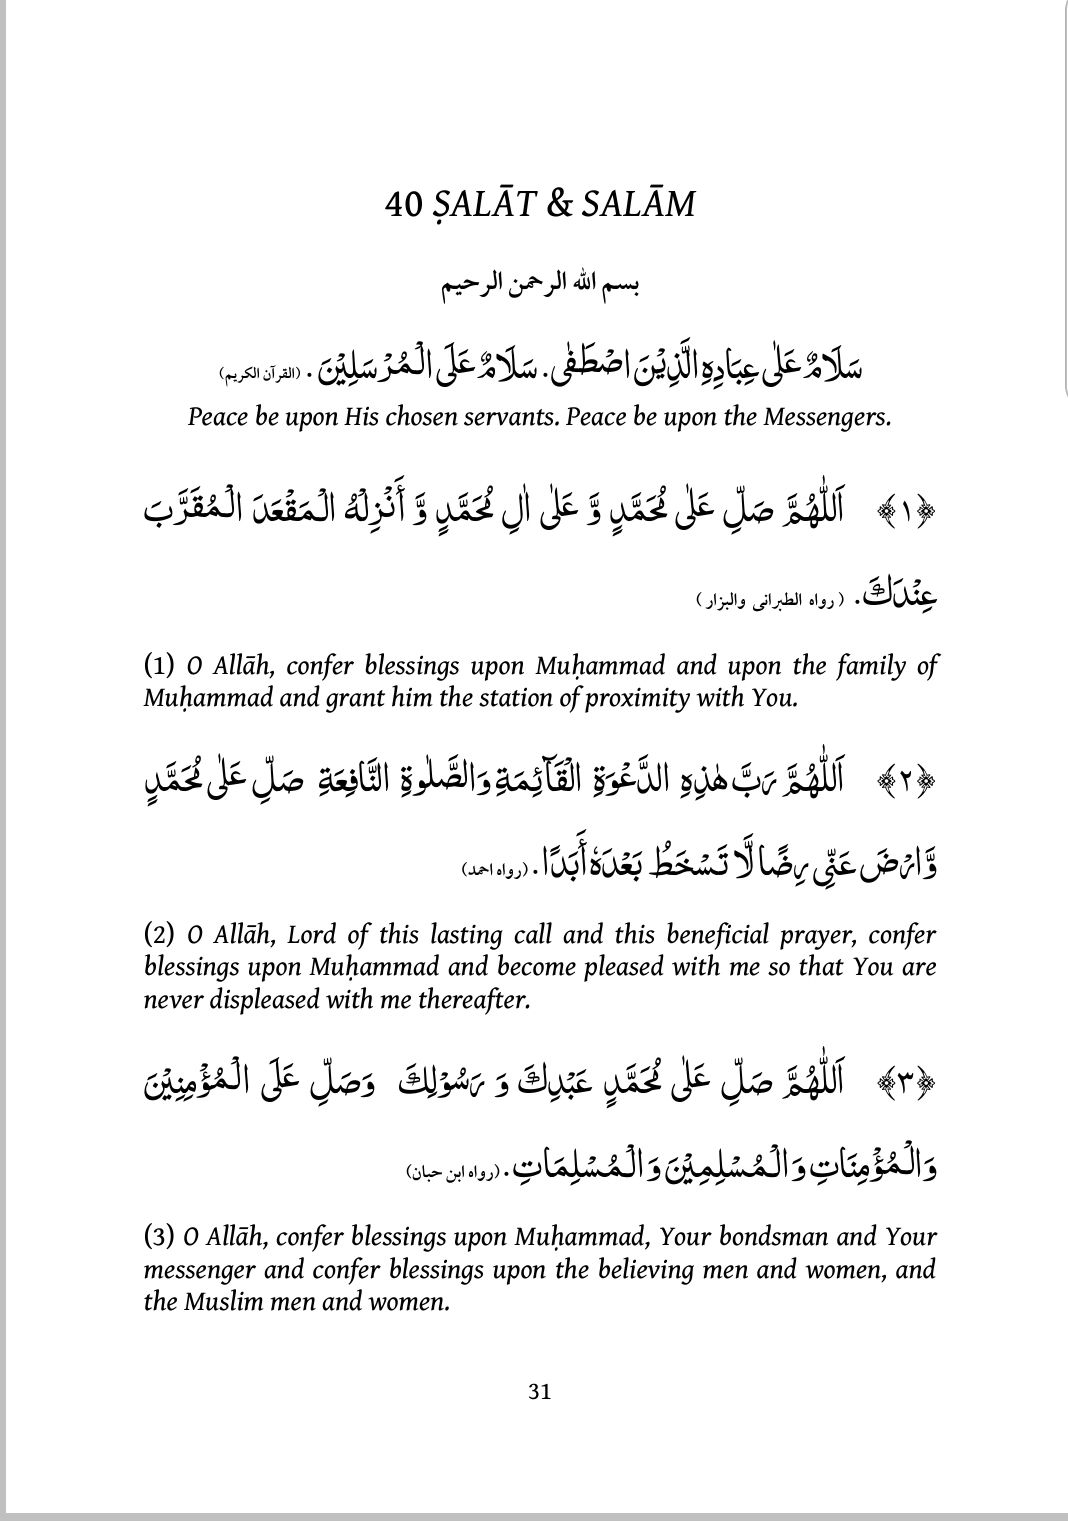 40 ṢALĀT & SALĀM
بسم الله الرحمن الرحيم
سَلَامٌ عَلٰى عِبَادِهِ الَّذِيْنَ اصْطَفٰى. سَلَامٌ عَلَى الْمُرْسَلِيْنَ. (القرآن الكريم)
Peace be upon His chosen servants. Peace be upon the Messengers.
﴿١﴾ اَللّٰهُمَّ صَلِّ عَلٰى مُحَمَّدٍ وَّ عَلٰى اٰلِ مُحَمَّدٍ وَّ أَنْزِلْهُ الْمَقْعَدَ الْمُقَرَّبَ
عِنْدَكَ. (رواه الطبرانى والبزار)
(1) O Allāh, confer blessings upon Muḥammad and upon the family of
Muḥammad and grant him the station of proximity with You.
﴿٢﴾ اَللّٰهُمَّ رَبَّ هٰذِهِ الدَّعْوَةِ الْقَآئِمَةِ وَالصَّلٰوةِ النَّافِعَةِ صَلِّ عَلٰى مُحَمَّدٍ
وَّارْضَ عَنِّى رِضًا لَّا تَسْخَطُ بَعْدَهٗ أَبَدًا. (رواه احمد)
(2) O Allāh, Lord of this lasting call and this beneficial prayer, confer
blessings upon Muḥammad and become pleased with me so that You are
never displeased with me thereafter.
﴿٣﴾ اَللّٰهُمَّ صَلِّ عَلٰى مُحَمَّدٍ عَبْدِكَ وَ رَسُوْلِكَ وَصَلِّ عَلَى الْمُؤْمِنِيْنَ
وَالْمُؤْمِنَاتِ وَالْمُسْلِمِيْنَ وَالْمُسْلِمَاتِ. (رواه ابن حبان)
(3) O Allāh, confer blessings upon Muḥammad, Your bondsman and Your
messenger and confer blessings upon the believing men and women, and
the Muslim men and women.
31